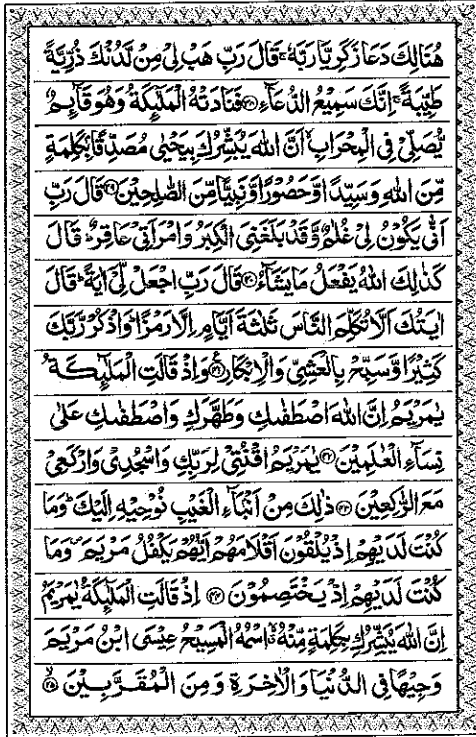 هُنَالِكَ دَعَا زَكَرِيَّا رَبَّهٗ ۚ قَالَ رَبِّ هَبْ لِيْ مِنْ لَّدُنْكَ ذُرِّيَّةً
طَيِّبَةً ۚ اِنَّكَ سَمِيْعُ الدُّعَآءِ ﴿۳۸﴾ فَنَادَتْهُ الْمَلٰٓئِكَةُ وَهُوَ قَآئِمٌ
يُّصَلِّيْ فِي الْمِحْرَابِ ۙ اَنَّ اللّٰهَ يُبَشِّرُكَ بِيَحْيٰى مُصَدِّقًۢا بِكَلِمَةٍ
مِّنَ اللّٰهِ وَسَيِّدًا وَّحَصُوْرًا وَّنَبِيًّا مِّنَ الصّٰلِحِيْنَ ﴿۳۹﴾ قَالَ رَبِّ
اَنّٰى يَكُوْنُ لِيْ غُلٰمٌ وَّقَدْ بَلَغَنِيَ الْكِبَرُ وَامْرَاَتِيْ عَاقِرٌ ؕ قَالَ
كَذٰلِكَ اللّٰهُ يَفْعَلُ مَا يَشَآءُ ﴿۴۰﴾ قَالَ رَبِّ اجْعَلْ لِّيْٓ اٰيَةً ؕ قَالَ
اٰيَتُكَ اَلَّا تُكَلِّمَ النَّاسَ ثَلٰثَةَ اَيَّامٍ اِلَّا رَمْزًا ؕ وَاذْكُرْ رَّبَّكَ
كَثِيْرًا وَّسَبِّحْ بِالْعَشِيِّ وَالْاِبْكَارِ ﴿۴۱﴾ وَاِذْ قَالَتِ الْمَلٰٓئِكَةُ
يٰمَرْيَمُ اِنَّ اللّٰهَ اصْطَفٰىكِ وَطَهَّرَكِ وَاصْطَفٰىكِ عَلٰى
نِسَآءِ الْعٰلَمِيْنَ ﴿۴۲﴾ يٰمَرْيَمُ اقْنُتِيْ لِرَبِّكِ وَاسْجُدِيْ وَارْكَعِيْ
مَعَ الرّٰكِعِيْنَ ﴿۴۳﴾ ذٰلِكَ مِنْ اَنْۢبَآءِ الْغَيْبِ نُوْحِيْهِ اِلَيْكَ ؕ وَمَا
كُنْتَ لَدَيْهِمْ اِذْ يُلْقُوْنَ اَقْلَامَهُمْ اَيُّهُمْ يَكْفُلُ مَرْيَمَ ۪ وَمَا
كُنْتَ لَدَيْهِمْ اِذْ يَخْتَصِمُوْنَ ﴿۴۴﴾ اِذْ قَالَتِ الْمَلٰٓئِكَةُ يٰمَرْيَمُ
اِنَّ اللّٰهَ يُبَشِّرُكِ بِكَلِمَةٍ مِّنْهُ ۖ اسْمُهُ الْمَسِيْحُ عِيْسَى ابْنُ مَرْيَمَ
وَجِيْهًا فِي الدُّنْيَا وَالْاٰخِرَةِ وَمِنَ الْمُقَرَّبِيْنَ ﴿۴۵﴾ ۙ